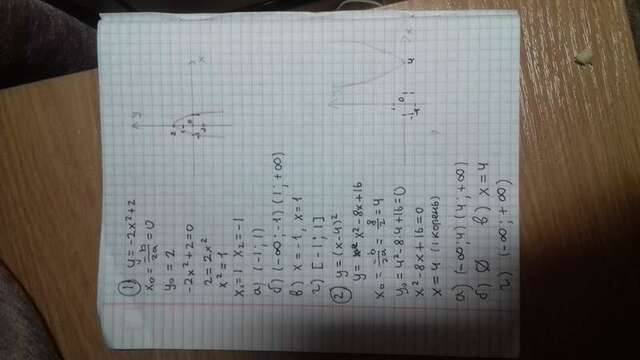 1) y = -2x²+2
x₀ = -b/2a = 0
y₀ = 2
-2x²+2=0
2=2x²
x²=1
x₁=1 x₂=-1
а) (-1; 1)
б) (-∞; -1) (1; +∞)
в) x=-1, x=1
г) [-1; 1]
2) y=(x-4)²
y= x²-8x+16
x₀ = -b/2a = 8/2 = 4
y₀ = 4²-8·4+16=0
x²-8x+16=0
x=4 (1 корень)
а) (-∞; 4) (4; +∞)
б) Ø в) x=4
г) (-∞; +∞)
y
2
1
-1
0
x
1
0
-1
4
x